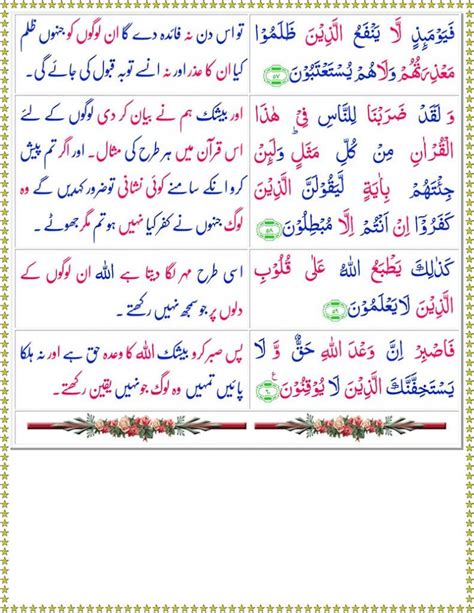 فَيَوْمَىِٕذٍ لَّا يَنْفَعُ الَّذِيْنَ ظَلَمُوْا
مَعْذِرَتُهُمْ وَلَا هُمْ يُسْتَعْتَبُوْنَ ۝۵۷
تو اس دن نہ فائدہ دے گا ان لوگوں کو جنہوں ظلم
کیا ان کا عذر اور نہ انسے توبہ قبول کی جائے گی۔
وَ لَقَدْ ضَرَبْنَا لِلنَّاسِ فِيْ هٰذَا
الْقُرْاٰنِ مِنْ كُلِّ مَثَلٍ ؕ وَلَىِٕنْ
جِئْتَهُمْ بِاٰيَةٍ لَّيَقُوْلَنَّ الَّذِيْنَ
كَفَرُوْۤا اِنْ اَنْتُمْ اِلَّا مُبْطِلُوْنَ ۝۵۸
اور بیشک ہم نے بیان کر دی لوگوں کے لئے
اس قرآن میں ہر طرح کی مثال۔ اور اگر تم پیش
کرو انکے سامنے کوئی نشانی تو ضرور کہدیں گے وہ
لوگ جنہوں نے کفر کیا نہیں ہو تم مگر جھوٹے۔
كَذٰلِكَ يَطْبَعُ اللّٰهُ عَلٰى قُلُوْبِ
الَّذِيْنَ لَا يَعْلَمُوْنَ ۝۵۹
اسی طرح مہر لگا دیتا ہے اللہ ان لوگوں کے
دلوں پر جو سمجھ نہیں رکھتے۔
فَاصْبِرْ اِنَّ وَعْدَ اللّٰهِ حَقٌّ وَّ لَا
يَسْتَخِفَّنَّكَ الَّذِيْنَ لَا يُوْقِنُوْنَ ۝۶۰
پس صبر کرو بیشک اللہ کا وعدہ حق ہے اور نہ ہلکا
پائیں تمہیں وہ لوگ جو نہیں یقین رکھتے۔